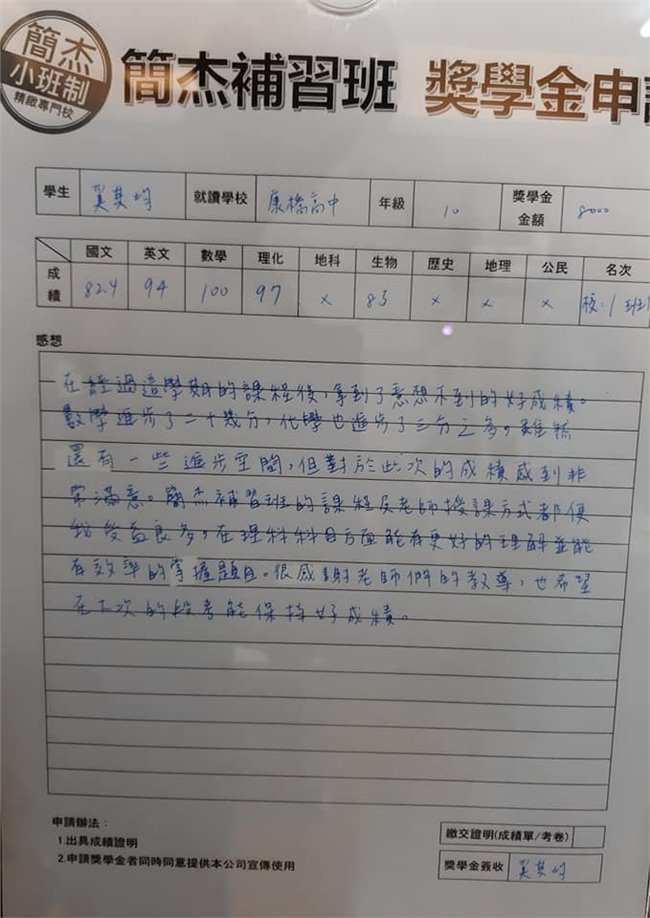 簡杰
小班制
精緻專門校
簡杰補習班 獎學金申請
學生 就讀學校 康橋高中 年級 10 獎學金金額 8000
國文 英文 數學 理化 地科 生物 歷史 地理 公民 名次
成績 82.4 94 100 97 x 85 x x x 校:1 班1
感想
在經過這學期的課程後,拿到了意想不到的好成績。
數學進步了二十幾分,化學也進步了三分之多。雖然
還有一些進步空間,但對於此次的成績感到非
常滿意。簡杰補習班的課程及老師授課方式都使
我受益良多,在理科科目方面能有更好的理解並能
有效率的掌握題目。很感謝老師們的教導,也希望
在下次的段考能保持好成績。
申請辦法:
1.出具成績證明
2.申請獎學金者同時同意提供本公司宣傳使用
繳交證明(成績單/考卷)
獎學金簽收